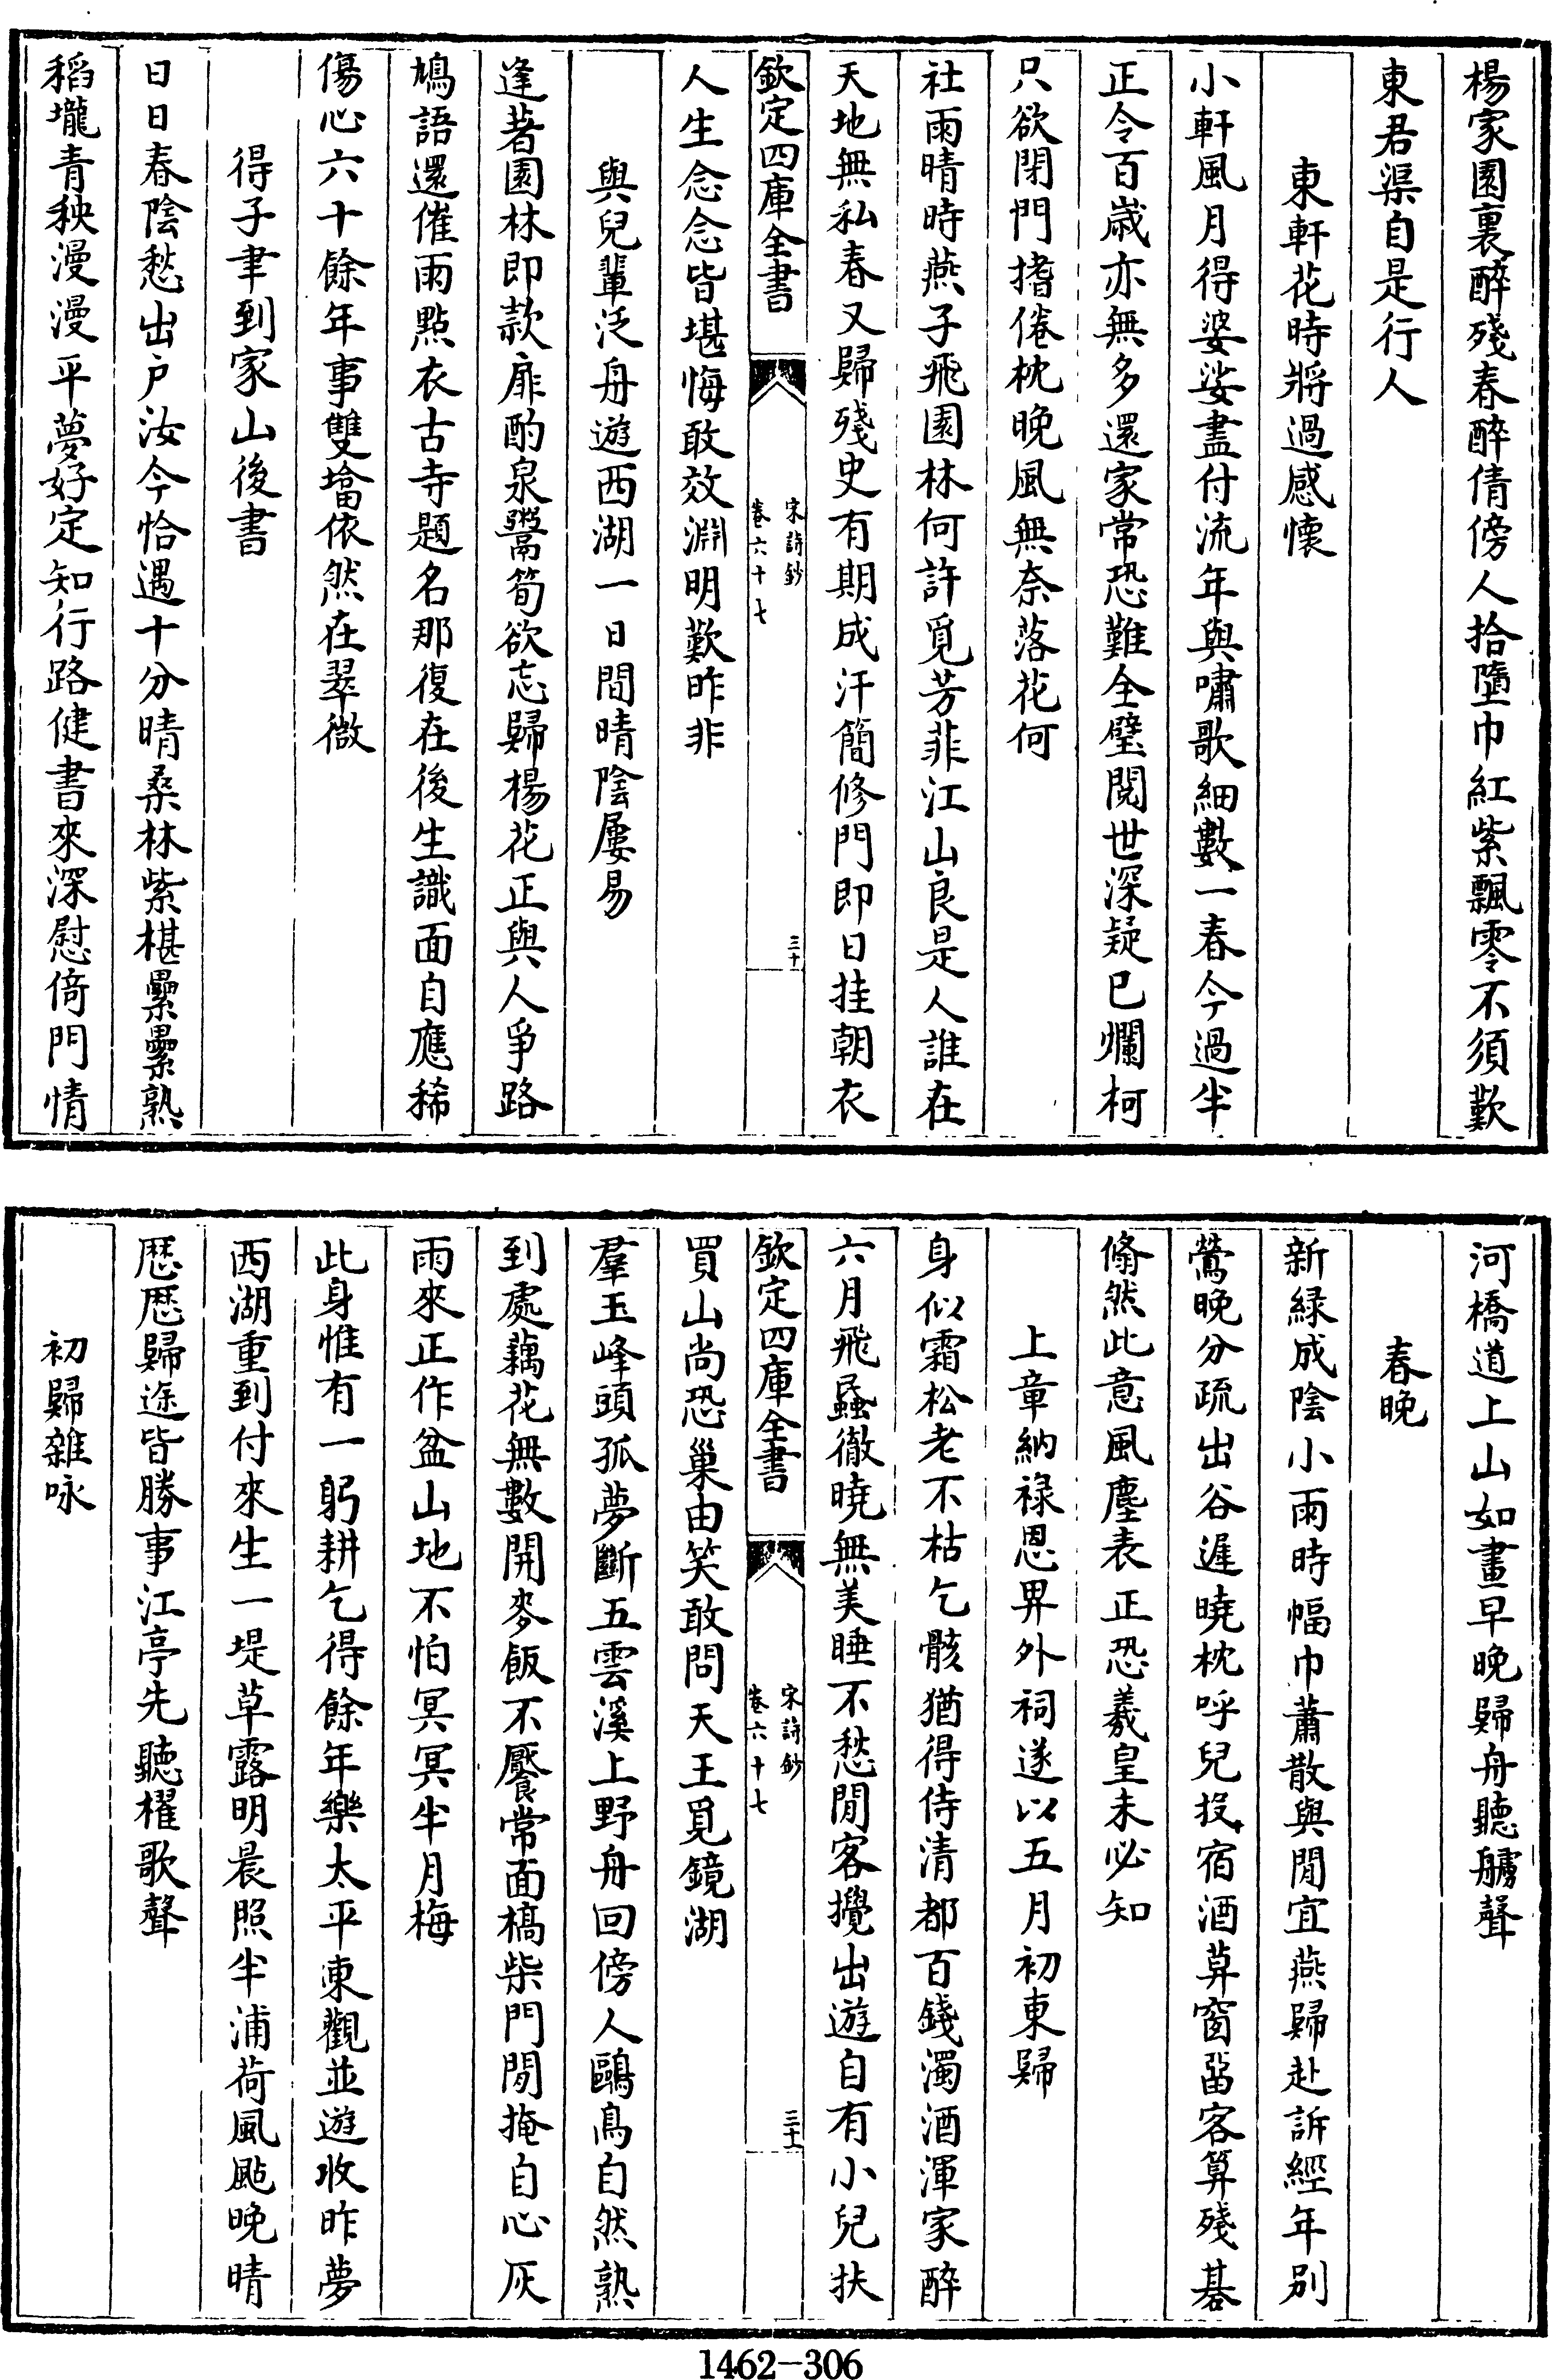 楊家園裏醉殘春醉倩傍人拾墮巾紅紫飄零不須歎
東君渠自是行人
東軒花時將過感懷
小軒風月得婆娑盡付流年與嘯歌細數一春今過半
正令百歲亦無多還家常恐難全璧閱世深疑已爛柯
只欲閉門揩倦枕晚風無奈落花何
社雨晴時燕子飛園林何許覓芳菲江山良是人誰在
天地無私春又歸殘史有期成汗簡修門即日挂朝衣
欽定四庫全書
宋詩鈔
卷六十七
三十
人生念念皆堪悔敢效淵明歎昨非
與兒輩泛舟遊西湖一日間晴陰屢易
逢著園林即款扉酌泉鬻筍欲忘歸楊花正與人爭路
鳩語還催雨點衣古寺題名那復在後生識面自應稀
傷心六十餘年事雙墖依然在翠微
得子聿到家山後書
日日春陰愁出户汝今恰遇十分晴桑林紫椹纍纍熟
稻壠青秧漫漫平夢好定知行路健書來深慰倚門情
河橋道上山如畫早晚歸舟聽艣聲
春晚
新緑成陰小雨時幅巾蕭散與閒宜燕歸赴訴經年别
鶯晚分疏出谷遲曉枕呼兒投宿酒茆窗畱客算殘碁
翛然此意風塵表正恐羲皇未必知
上章納禄恩畀外祠遂以五月初東歸
身似霜松老不枯乞骸猶得侍清都百錢濁酒渾家醉
六月飛蟲徹曉無美睡不愁閒客攪出遊自有小兒扶
欽定四庫全書
宋詩鈔
卷六十七
三十一
買山尚恐巢由笑敢問天王覓鏡湖
羣玉峰頭孤夢斷五雲溪上野舟回傍人鷗鳥自然熟
到處藕花無數開麥飯不饜常面槁柴門閒掩自心灰
雨來正作盆山地不怕冥冥半月梅
此身惟有一躬耕乞得餘年樂太平東觀並遊收昨夢
西湖重到付來生一堤草露明晨照半浦荷風颭晚晴
歷歷歸途皆勝事江亭先聽櫂歌聲
初歸雜咏
1462-306